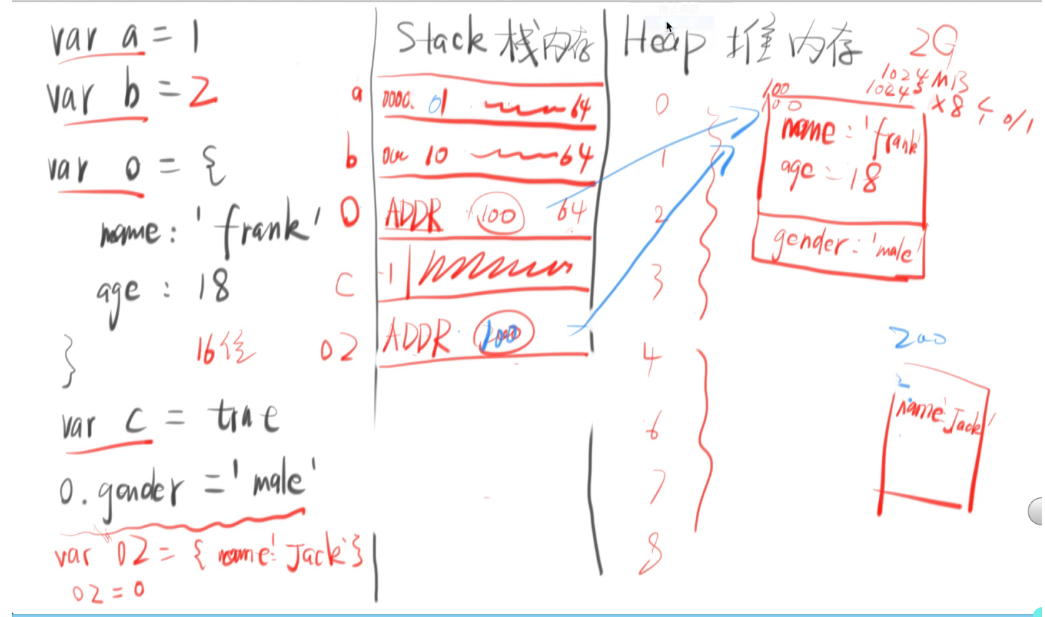 var a = 1
var b = 2
var o = {
name: 'frank'
age : 18
}
16位
var c = true
o.gender = 'male'
var o2 = { name: 'Jack' }
o2 = o
Stack 栈内存
a 0000. 01 64
b 10 64
o ADDR 100 64
c 1
o2 ADDR 100
Heap 堆内存
2G
1024 MB
1024
×8 0/1
0
1
2
3
4
6
7
8
100
name: 'frank'
age: 18
gender: 'male'
200
name: 'Jack'